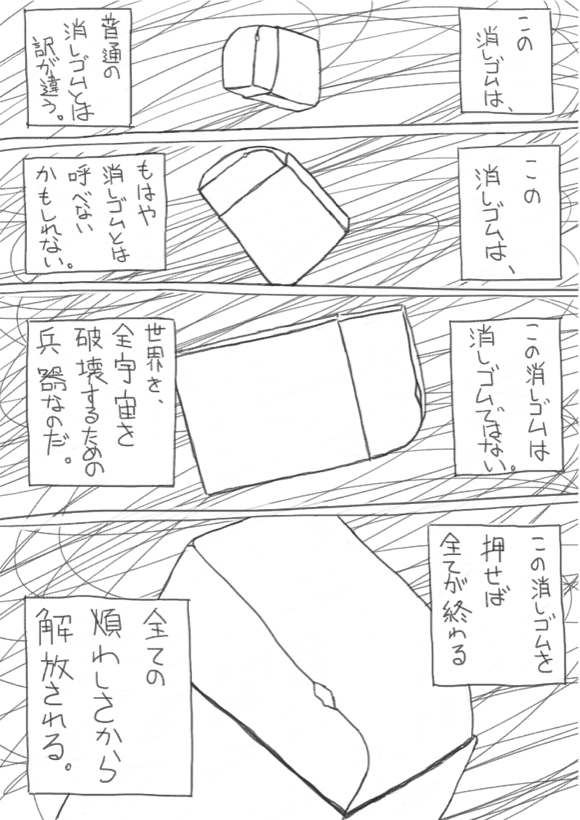 この
消しゴムは、
普通の
消しゴムとは
訳が違う。
この
消しゴムは、
もはや
消しゴムとは
呼べない
かもしれない。
この消しゴムは
消しゴムではない。
世界を、
全宇宙を
破壊するための
兵器なのだ。
この消しゴムを
押せば
全てが終わる
全ての
煩わしさから
解放される。